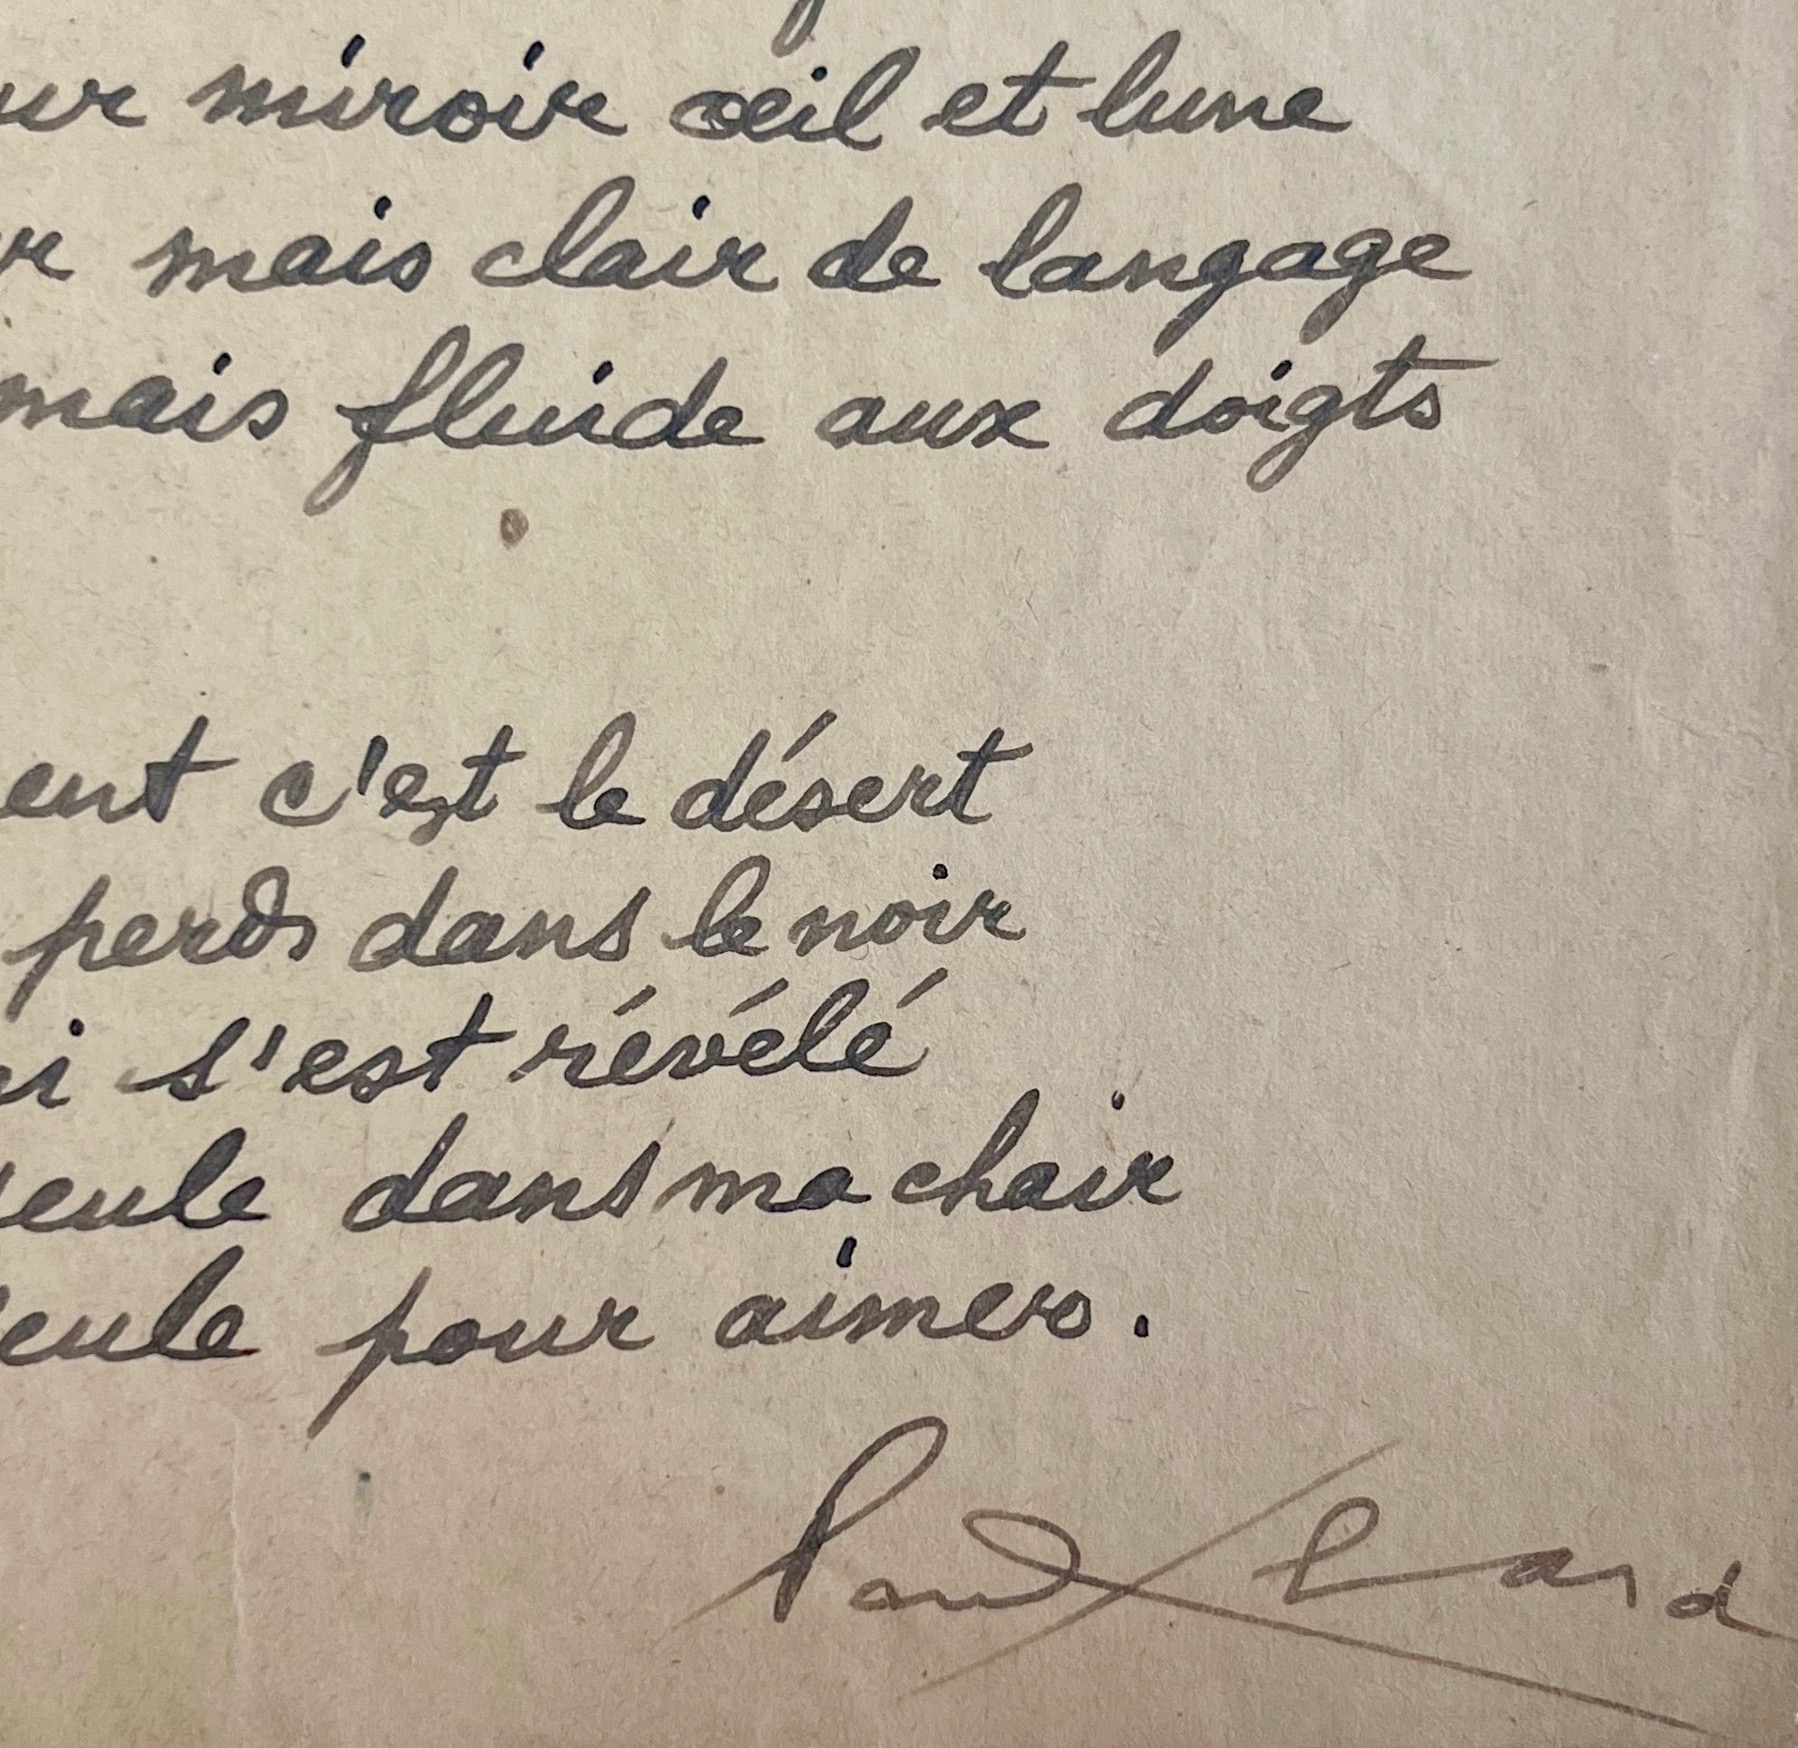 ur miroir œil et lune
r mais clair de langage
mais fluide aux doigts
ent c'est le désert
perds dans le noir
i s'est révélé
eule dans ma chair
seule pour aimer.
Paul Eluard